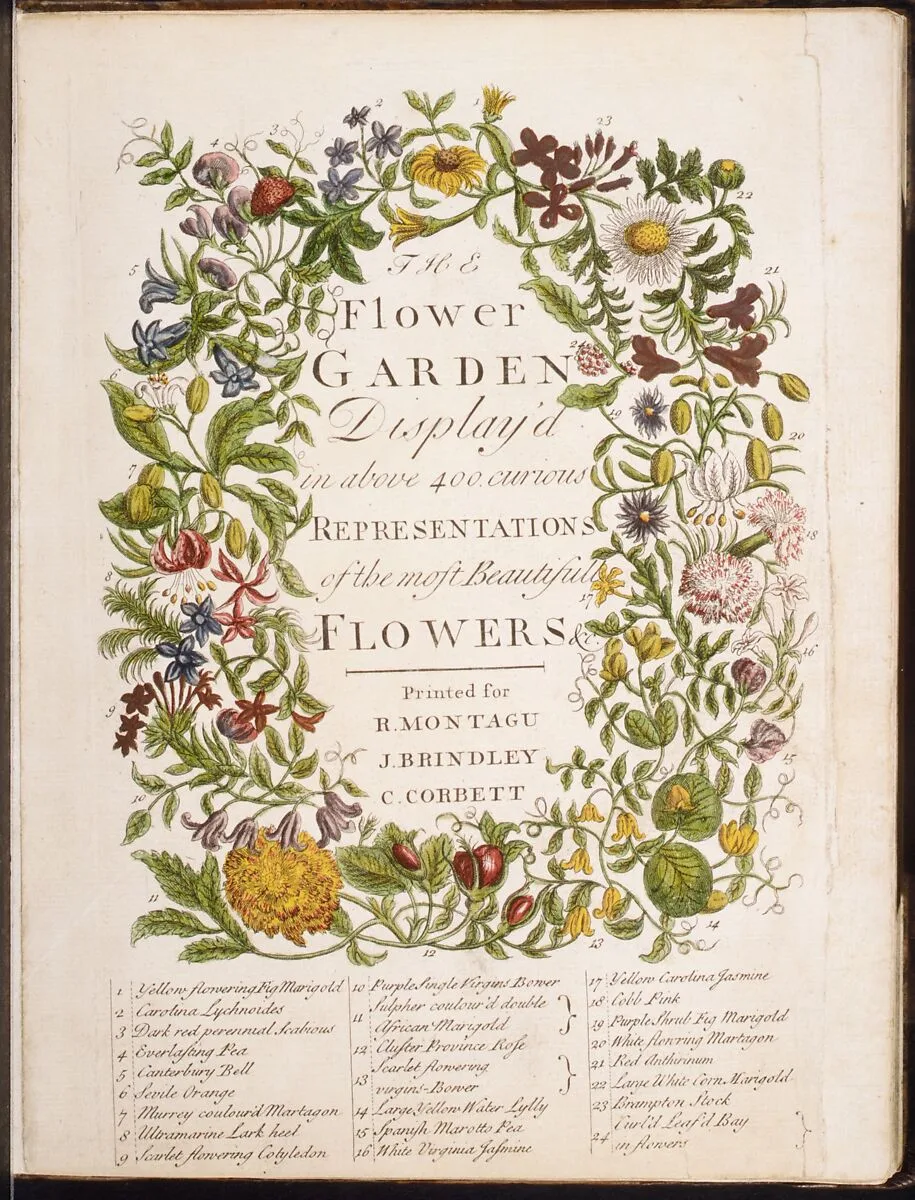 THE
Flower
GARDEN
Display'd
in above 400 curious
REPRESENTATIONS
of the most Beautifull
FLOWERS &c.
Printed for
R. MONTAGU
J. BRINDLEY
C. CORBETT
1 Yellow flowering Fig Marigold
2 Carolina Lychnoides
3 Dark red perennial Scabious
4 Everlasting Pea
5 Canterbury Bell
6 Sevile Orange
7 Murrey coulour'd Martagon
8 Ultramarine Lark heel
9 Scarlet flowering Cotyledon
10 Purple Single Virgins Bower
11 Sulpher coulour'd double
African Marigold
12 Cluster Province Rose
13 Scarlet flowering
virgins-Bower
14 Large Yellow Water Lylly
15 Spanish Marotto Pea
16 White Virginia Jasmine
17 Yellow Carolina Jasmine
18 Cobb Pink
19 Purple Shrub Fig Marigold
20 White flowring Martagon
21 Red Anthirinum
22 Large White Corn Marigold
23 Brampton Stock
24 Curl'd Leaf'd Bay
in flowers